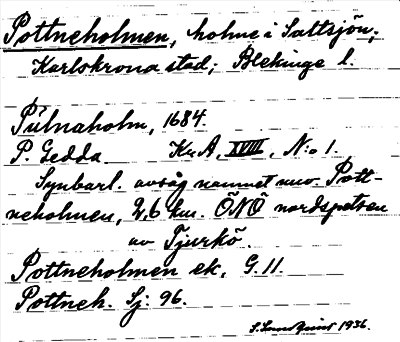 Pottneholmen, holme i Saltsjön;
Karlskrona stad; Blekinge l.
Pülnaholm, 1684.
P. Gedda Kr. A, XVIII, N:o 1.
Synbarl. avsåg namnet nuv. Pott-
neholmen, 2,6 km. ÖNÖ nordspetsen
av Tjurkö.
Pottneholmen ek. G. 11.
Pottneh. Sj: 96.
S. Sundquist 1936.